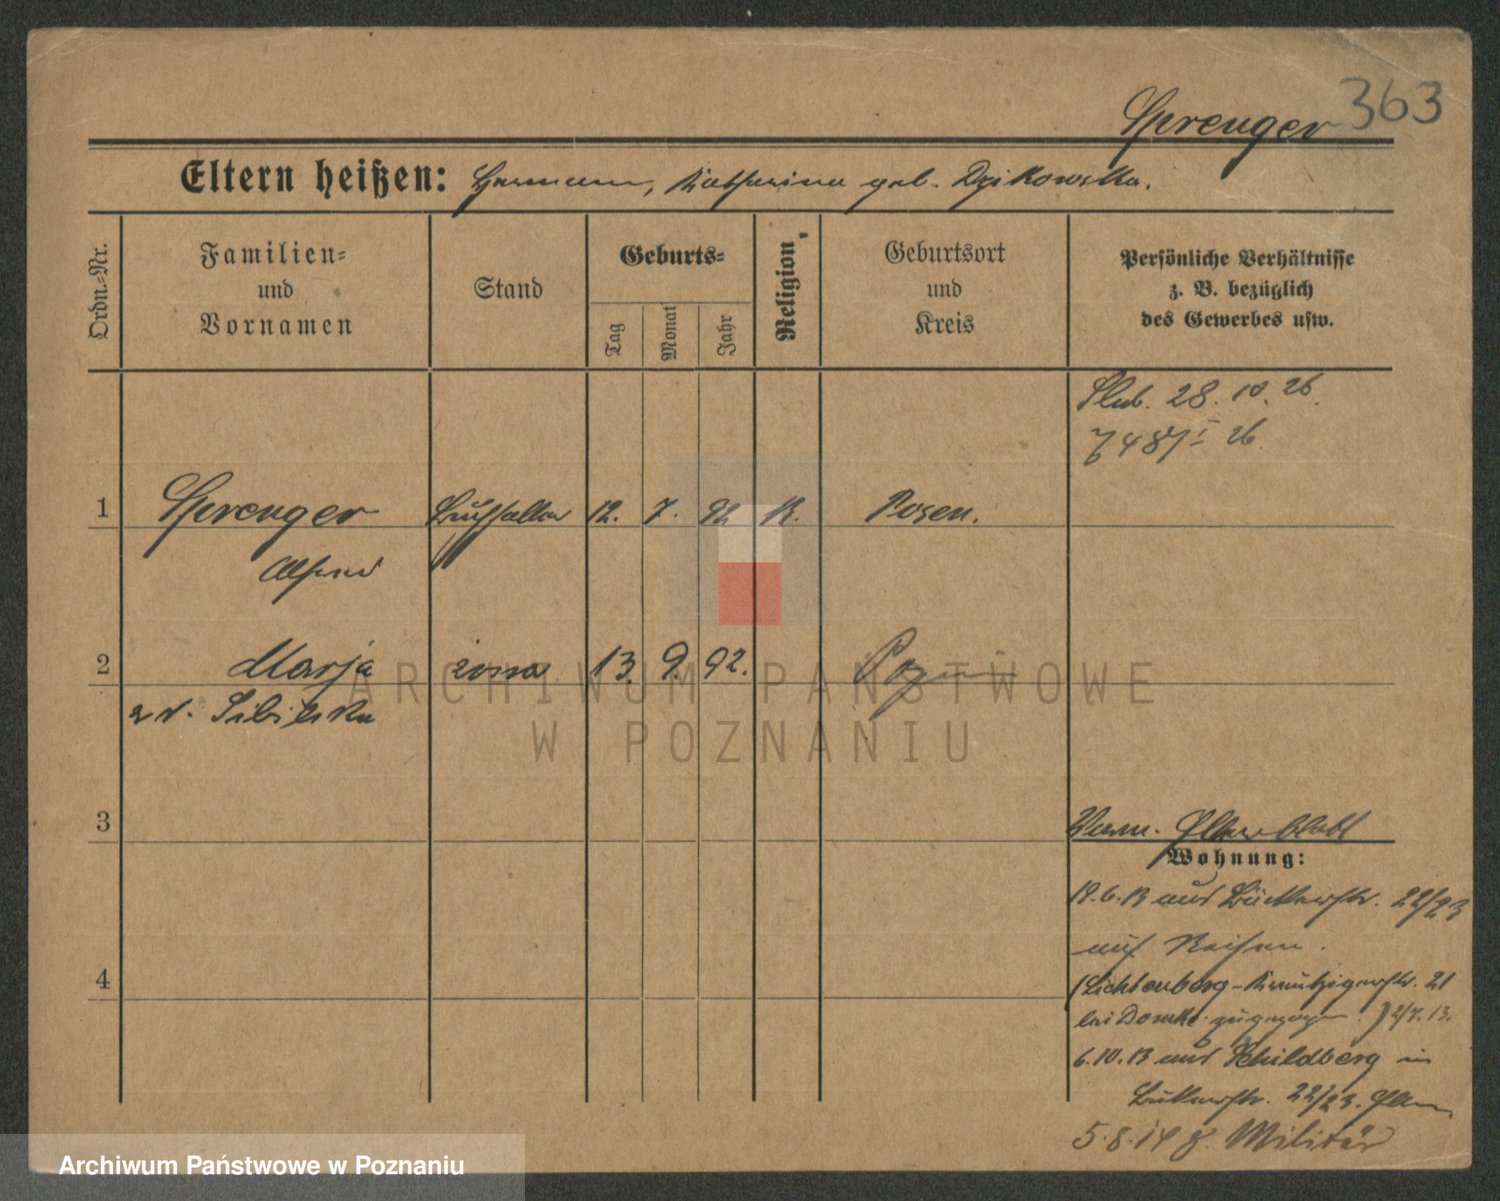 363
Sprenger
Eltern heißen: Hermann, Katharina geb. Dzikowska.
Ordn.-Nr.
Familien- und Vornamen
Stand
Geburts-
Tag
Monat
Jahr
Religion
Geburtsort und Kreis
Persönliche Verhältnisse z. B. bezüglich des Gewerbes usw.
Slub. 28. 10. 26.
7487 I 26
1 Sprenger 12. 7. 92 K. Posen.
Alfred
2 Marja żona 13. 9. 92.
z d. Sibilska
3
Verm. Elternblatt
Wohnung:
19.6.13 aus Bäckerstr. 22/23
auf Reisen.
4
(Lichtenberg - 21
bei zugezogen.) 2/7. 13.
6.10.13 aus Schildberg in
Bäckerstr. 22/23. Eltern
5.8.14 z. Militär
ARCHIWUM PAŃSTWOWE
W POZNANIU
Archiwum Państwowe w Poznaniu